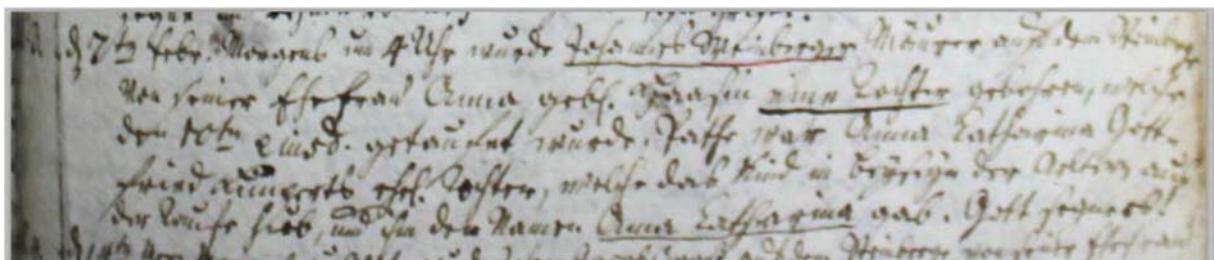 d 7ten Febr. Morgens um 4 Uhr wurde Johannes Weinberger Mäurer auf dem
von seiner Ehefrau Anna gebh. Haasin eine Tochter gebohren, welche
den 10ten ejusd. getauffet wurde. Pathe war Anna Catharina Gott-
fried ehel. Tochter, welche das Kind in Beyseyn der Aeltern aus
der Taufe hub, und ihr den Namen Anna Catharina gab. Gott segne es!